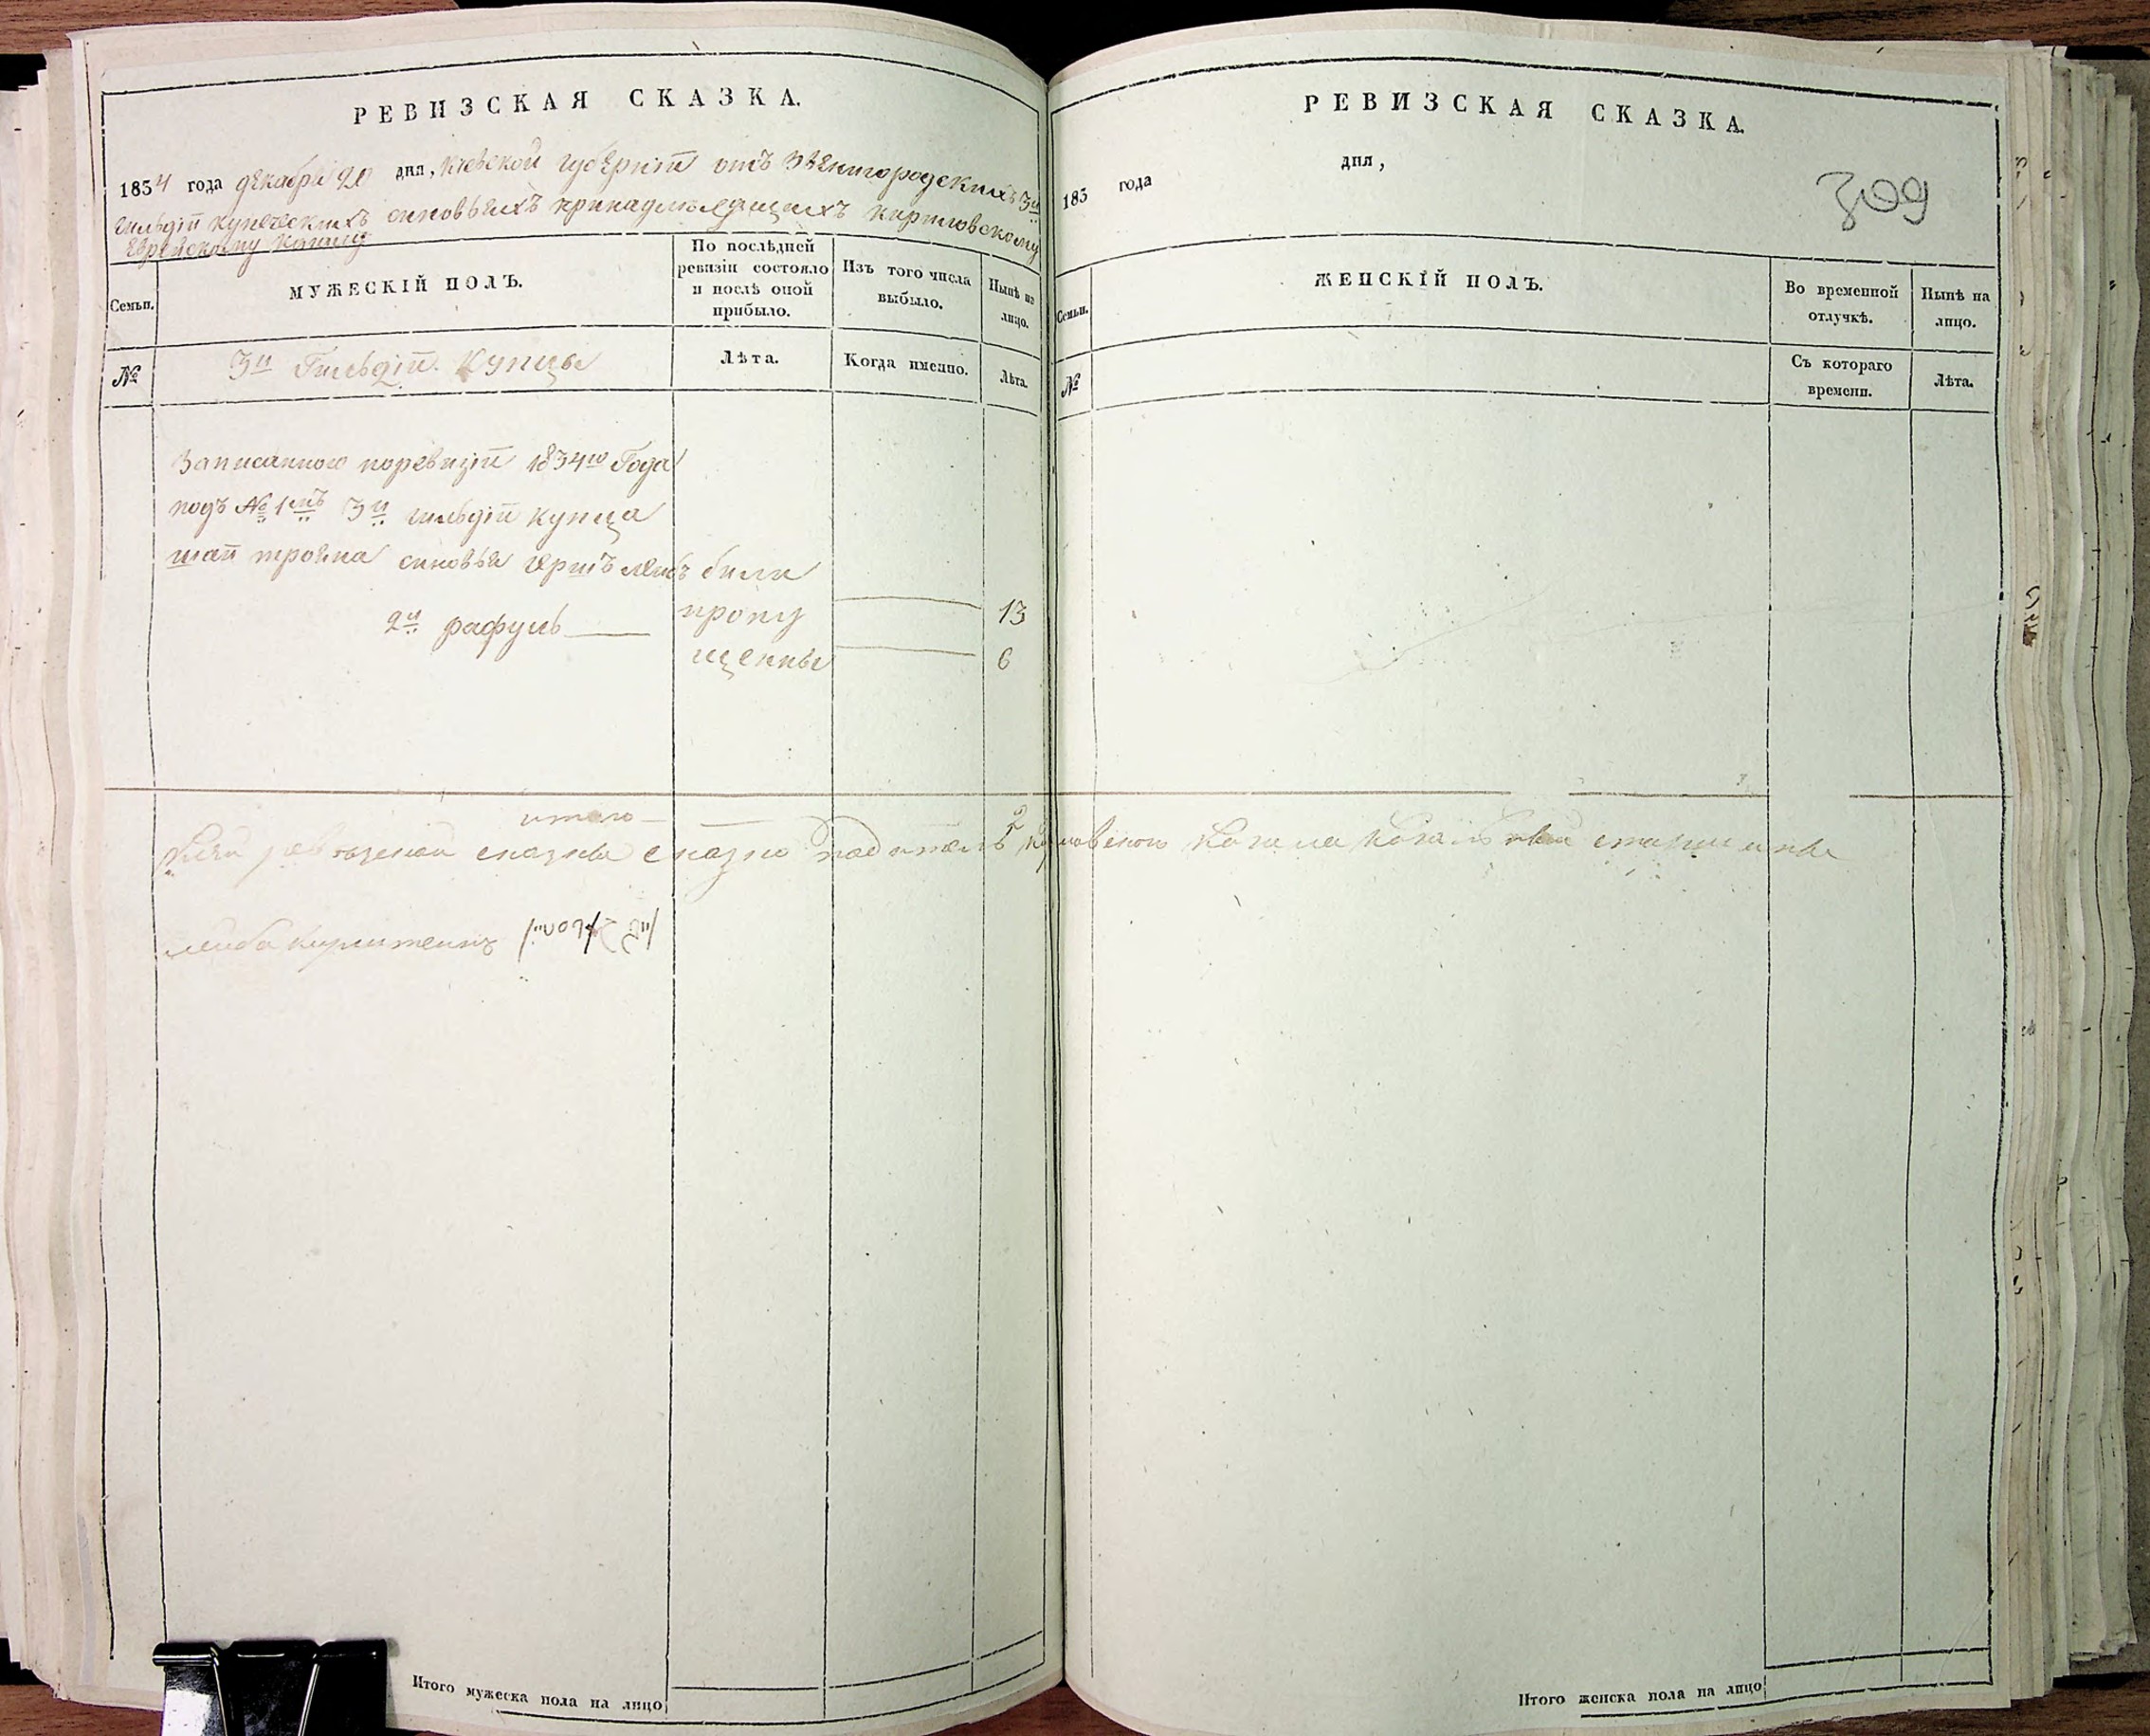 РЕВИЗСКАЯ СКАЗКА.
1834 года декабря 20 дня, Киевской губерніи отъ Звенигородскихъ 3й
гильдіи купеческихъ сыновьяхъ принадлежащихъ кириловскому
Еврейскому кагалу
Семьи.
МУЖЕСКІЙ ПОЛЪ.
По послѣдней ревизіи состояло и послѣ оной прибыло.
Изъ того числа выбыло.
Нынѣ на лицо.
№
3й Гильдіи Купцы
Лѣта.
Когда именно.
Лѣта.
Записанного поревизіи 1834го Года
подъ № 1мъ 3й гильдіи купца
сыновья Гершъ лейбъ были
пропу 13
2й рафуль
щенные 6
итого 2
ревизской сказки кагала
лейба
РЕВИЗСКАЯ СКАЗКА.
183 года дня,
309
Семьи.
ЖЕНСКІЙ ПОЛЪ.
Во временной отлучкѣ.
Нынѣ на лицо.
№
Съ котораго времени.
Лѣта.
Итого мужеска пола на лицо
Итого женска пола на лицо